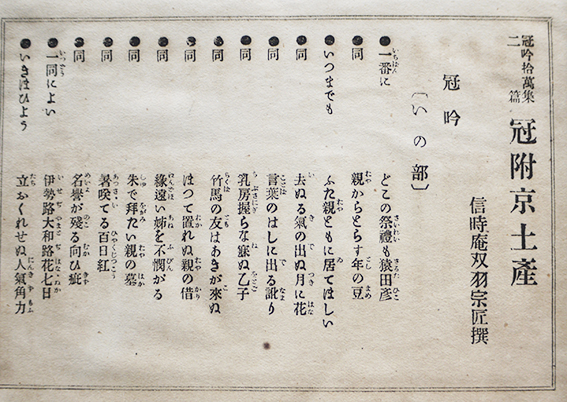 冠吟拾萬集
二篇
冠附京土產
信時庵双羽宗匠撰
冠吟
〔いの部〕
●一番に どこの祭禮も猿田彦
●同 親からとらす年の豆
●いつまでも ふた親ともに居てほしい
●同 去ぬる氣の出ぬ月に花
●同 言葉のはしに出る訛り
●同 乳房握らな寐ぬ乙子
●同 竹馬の友はあきが來ぬ
●同 はつて置れぬ親の借
●同 緣遠い姉を不憫がる
●同 朱で拜たい親の墓
●同 暑咲てる百日紅
●同 名譽が殘る向ひ疵
●一同によい 伊勢路大和路花七日
●いきほひよう 立おくれせぬ人氣角力